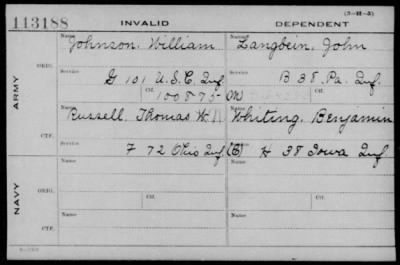 113188 INVALID (3-11-3) DEPENDENT
ARMY
ORIG.
Name Name
Johnson, William Langbein, John
Service Service
G 101 U.S.C. Inf B 38 Pa. Inf.
Ctf. 100875 Ctf. (M)
CTF.
Name Name
Russell, Thomas W. Whiting, Benjamin
Service Service
F 72 Ohio Inf (C) H 38 Iowa Inf
NAVY
ORIG.
Name Name
Ctf. Ctf.
CTF.
Name Name